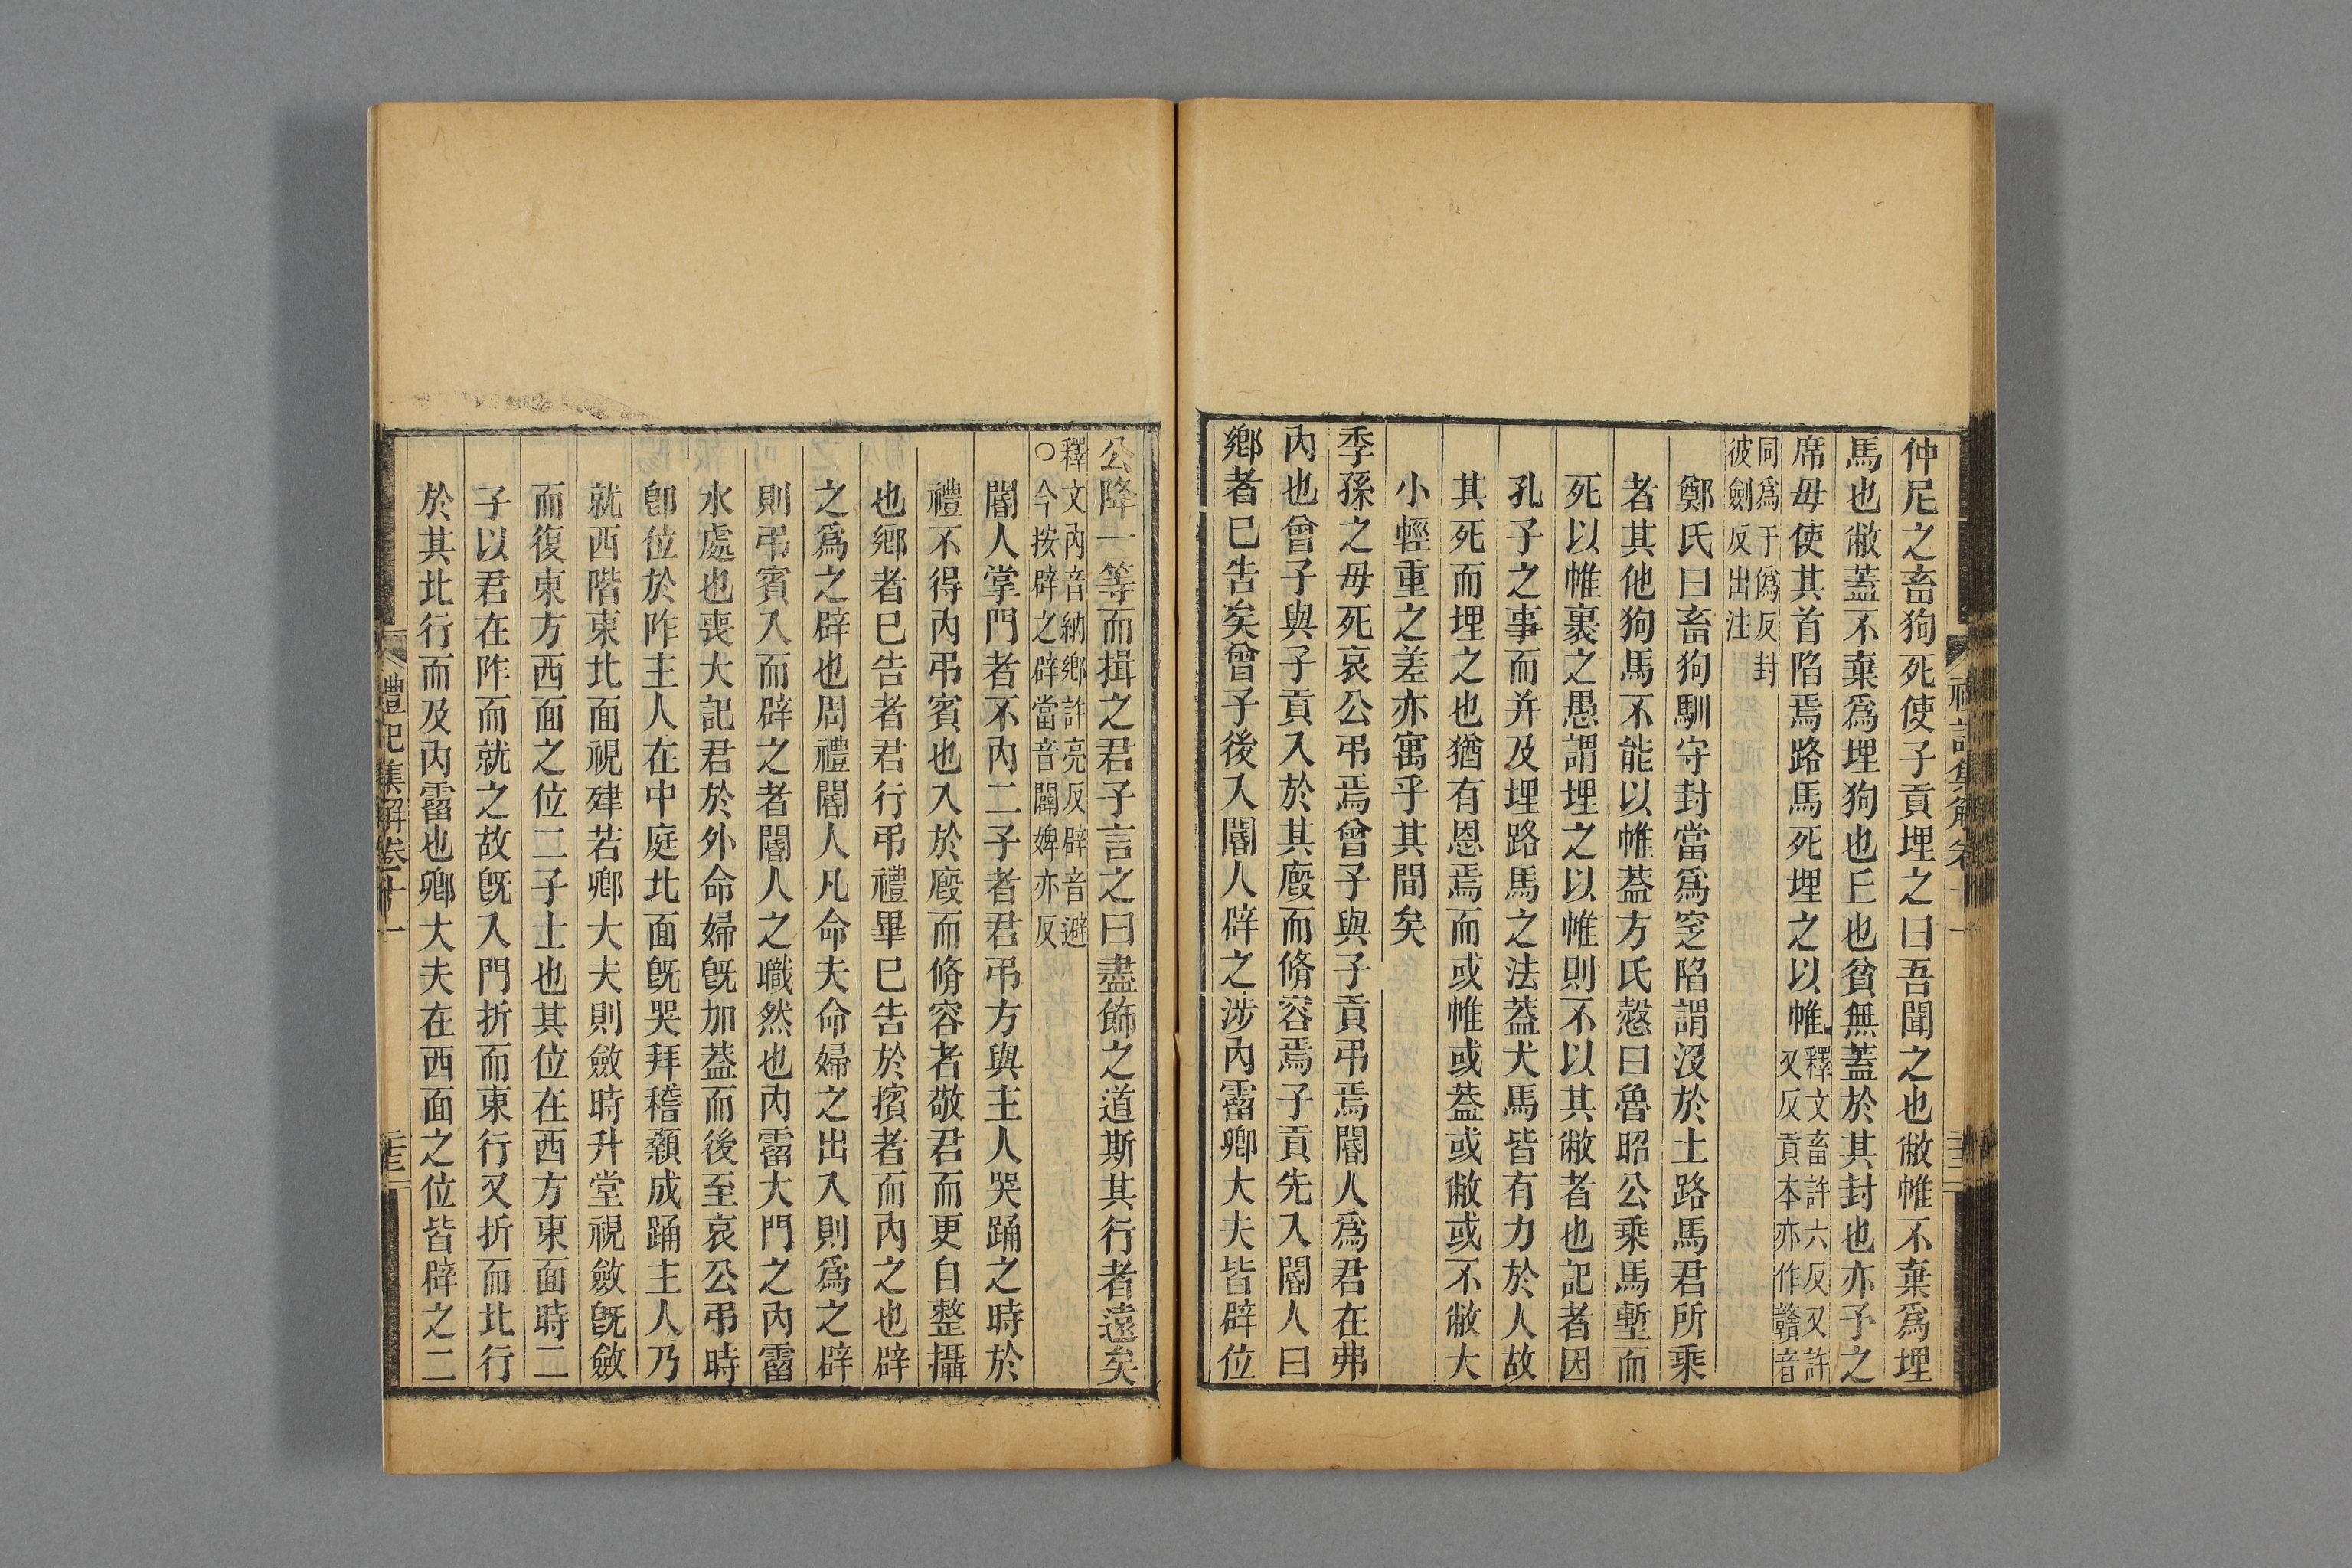 仲尼之畜狗死使子貢埋之曰吾聞之也敝帷不棄爲埋
馬也敝蓋不棄爲埋狗也丘也貧無蓋於其封也亦予之
席毋使其首陷焉路馬死埋之以帷釋文畜許六反又許
又反貢本亦作贛音
同爲于僞反封
彼劍反出注
鄭氏曰畜狗馴守封當爲窆陷謂沒於土路馬君所乘
者其他狗馬不能以帷葢方氏慤曰魯昭公乘馬塹而
死以帷裹之愚謂埋之以帷則不以其敝者也記者因
孔子之事而并及埋路馬之法葢犬馬皆有力於人故
其死而埋之也猶有恩焉而或帷或葢或敝或不敝大
小輕重之差亦寓乎其間矣
季孫之毋死哀公弔焉曾子與子貢弔焉閽人爲君在弗
內也曾子與子貢入於其廏而脩容焉子貢先入閽人曰
鄉者已告矣曾子後入閽人辟之涉內霤卿大夫皆辟位
公降一等而揖之君子言之曰盡飾之道斯其行者遠矣
釋文內音納鄉許亮反辟音避
○今按辟之辟當音闢婢亦反
閽人掌門者不內二子者君弔方與主人哭踊之時於
禮不得內弔賓也入於廏而脩容者敬君而更自整攝
也鄉者已告者君行弔禮畢已告於擯者而內之也辟
之爲之辟也周禮閽人凡命夫命婦之出入則爲之辟
則弔賓入而辟之者閽人之職然也內霤大門之內霤
水處也喪大記君於外命婦旣加葢而後至哀公弔時
卽位於阼主人在中庭北面旣哭拜稽顙成踊主人乃
就西階東北面視肂若卿大夫則斂時升堂視斂旣斂
而復東方西面之位二子士也其位在西方東面時二
子以君在阼而就之故旣入門折而東行又折而北行
於其北行而及內霤也卿大夫在西面之位皆辟之二
禮記集解卷十一